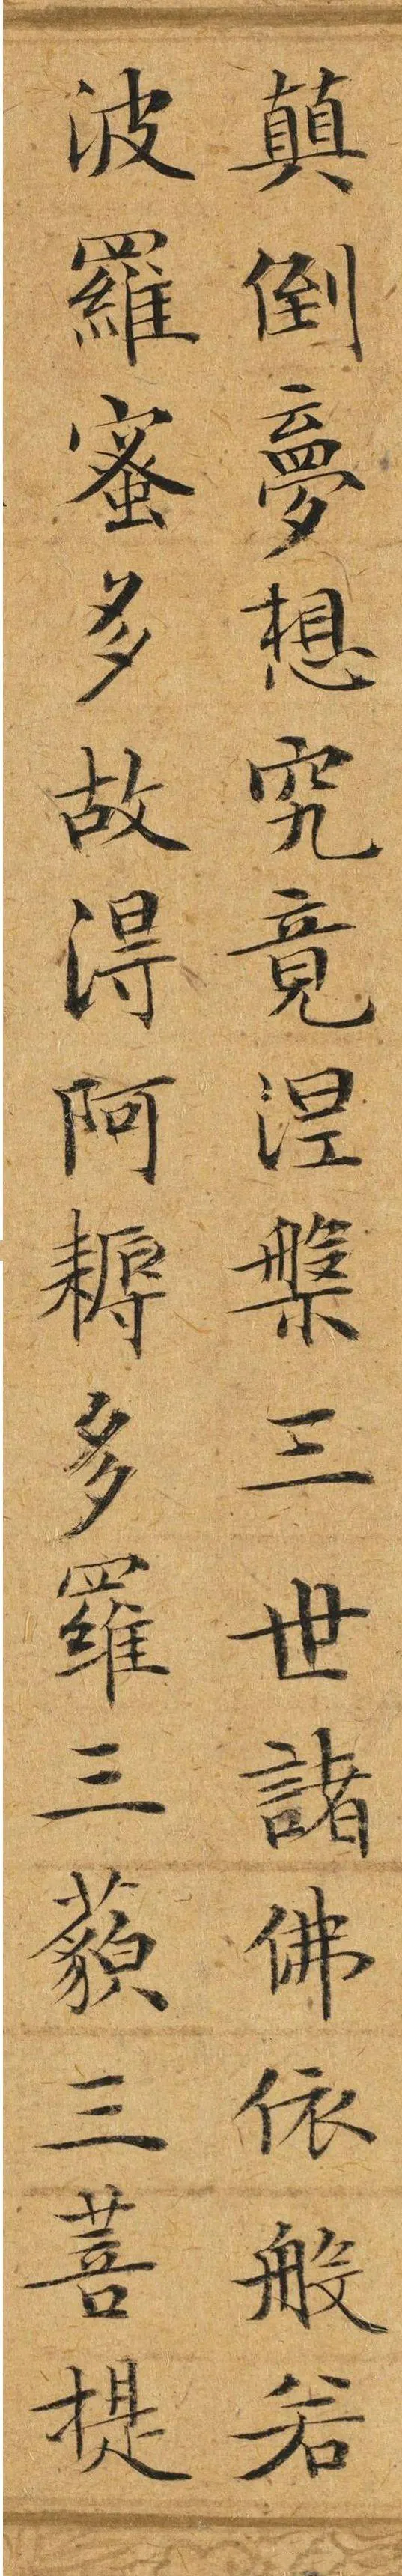 顛倒夢想究竟涅槃三世諸佛依般若
波羅蜜多故得阿耨多羅三藐三菩提